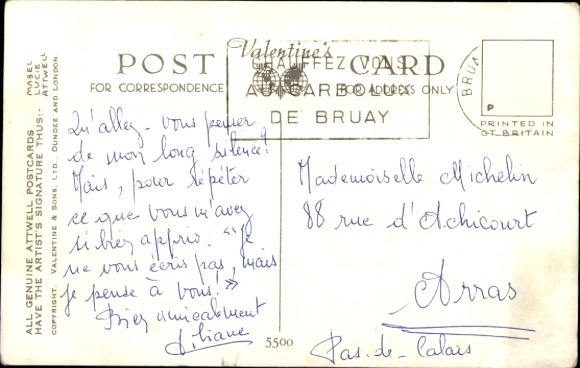 POST CARD
Valentine's
FOR CORRESPONDENCE
FOR ADDRESS ONLY
CHAUFFEZ VOUS
AU CARBOLUX
DE BRUAY
BRUA
P
PRINTED IN
GT. BRITAIN
ALL GENUINE ATTWELL POSTCARDS
HAVE THE ARTIST'S SIGNATURE THUS:-
MABEL
LUCIE
ATTWELL
COPYRIGHT. VALENTINE & SONS, LTD. DUNDEE AND LONDON
Qu'allez-vous penser
de mon long silence?
Mais, pour répéter
ce que vous m'avez
si bien appris: "Je
ne vous écris pas, mais
je pense à vous!"
Bien amicalement
Liliane
5500
Mademoiselle Michelin
88 rue d'Achicourt
Arras
Pas-de-Calais